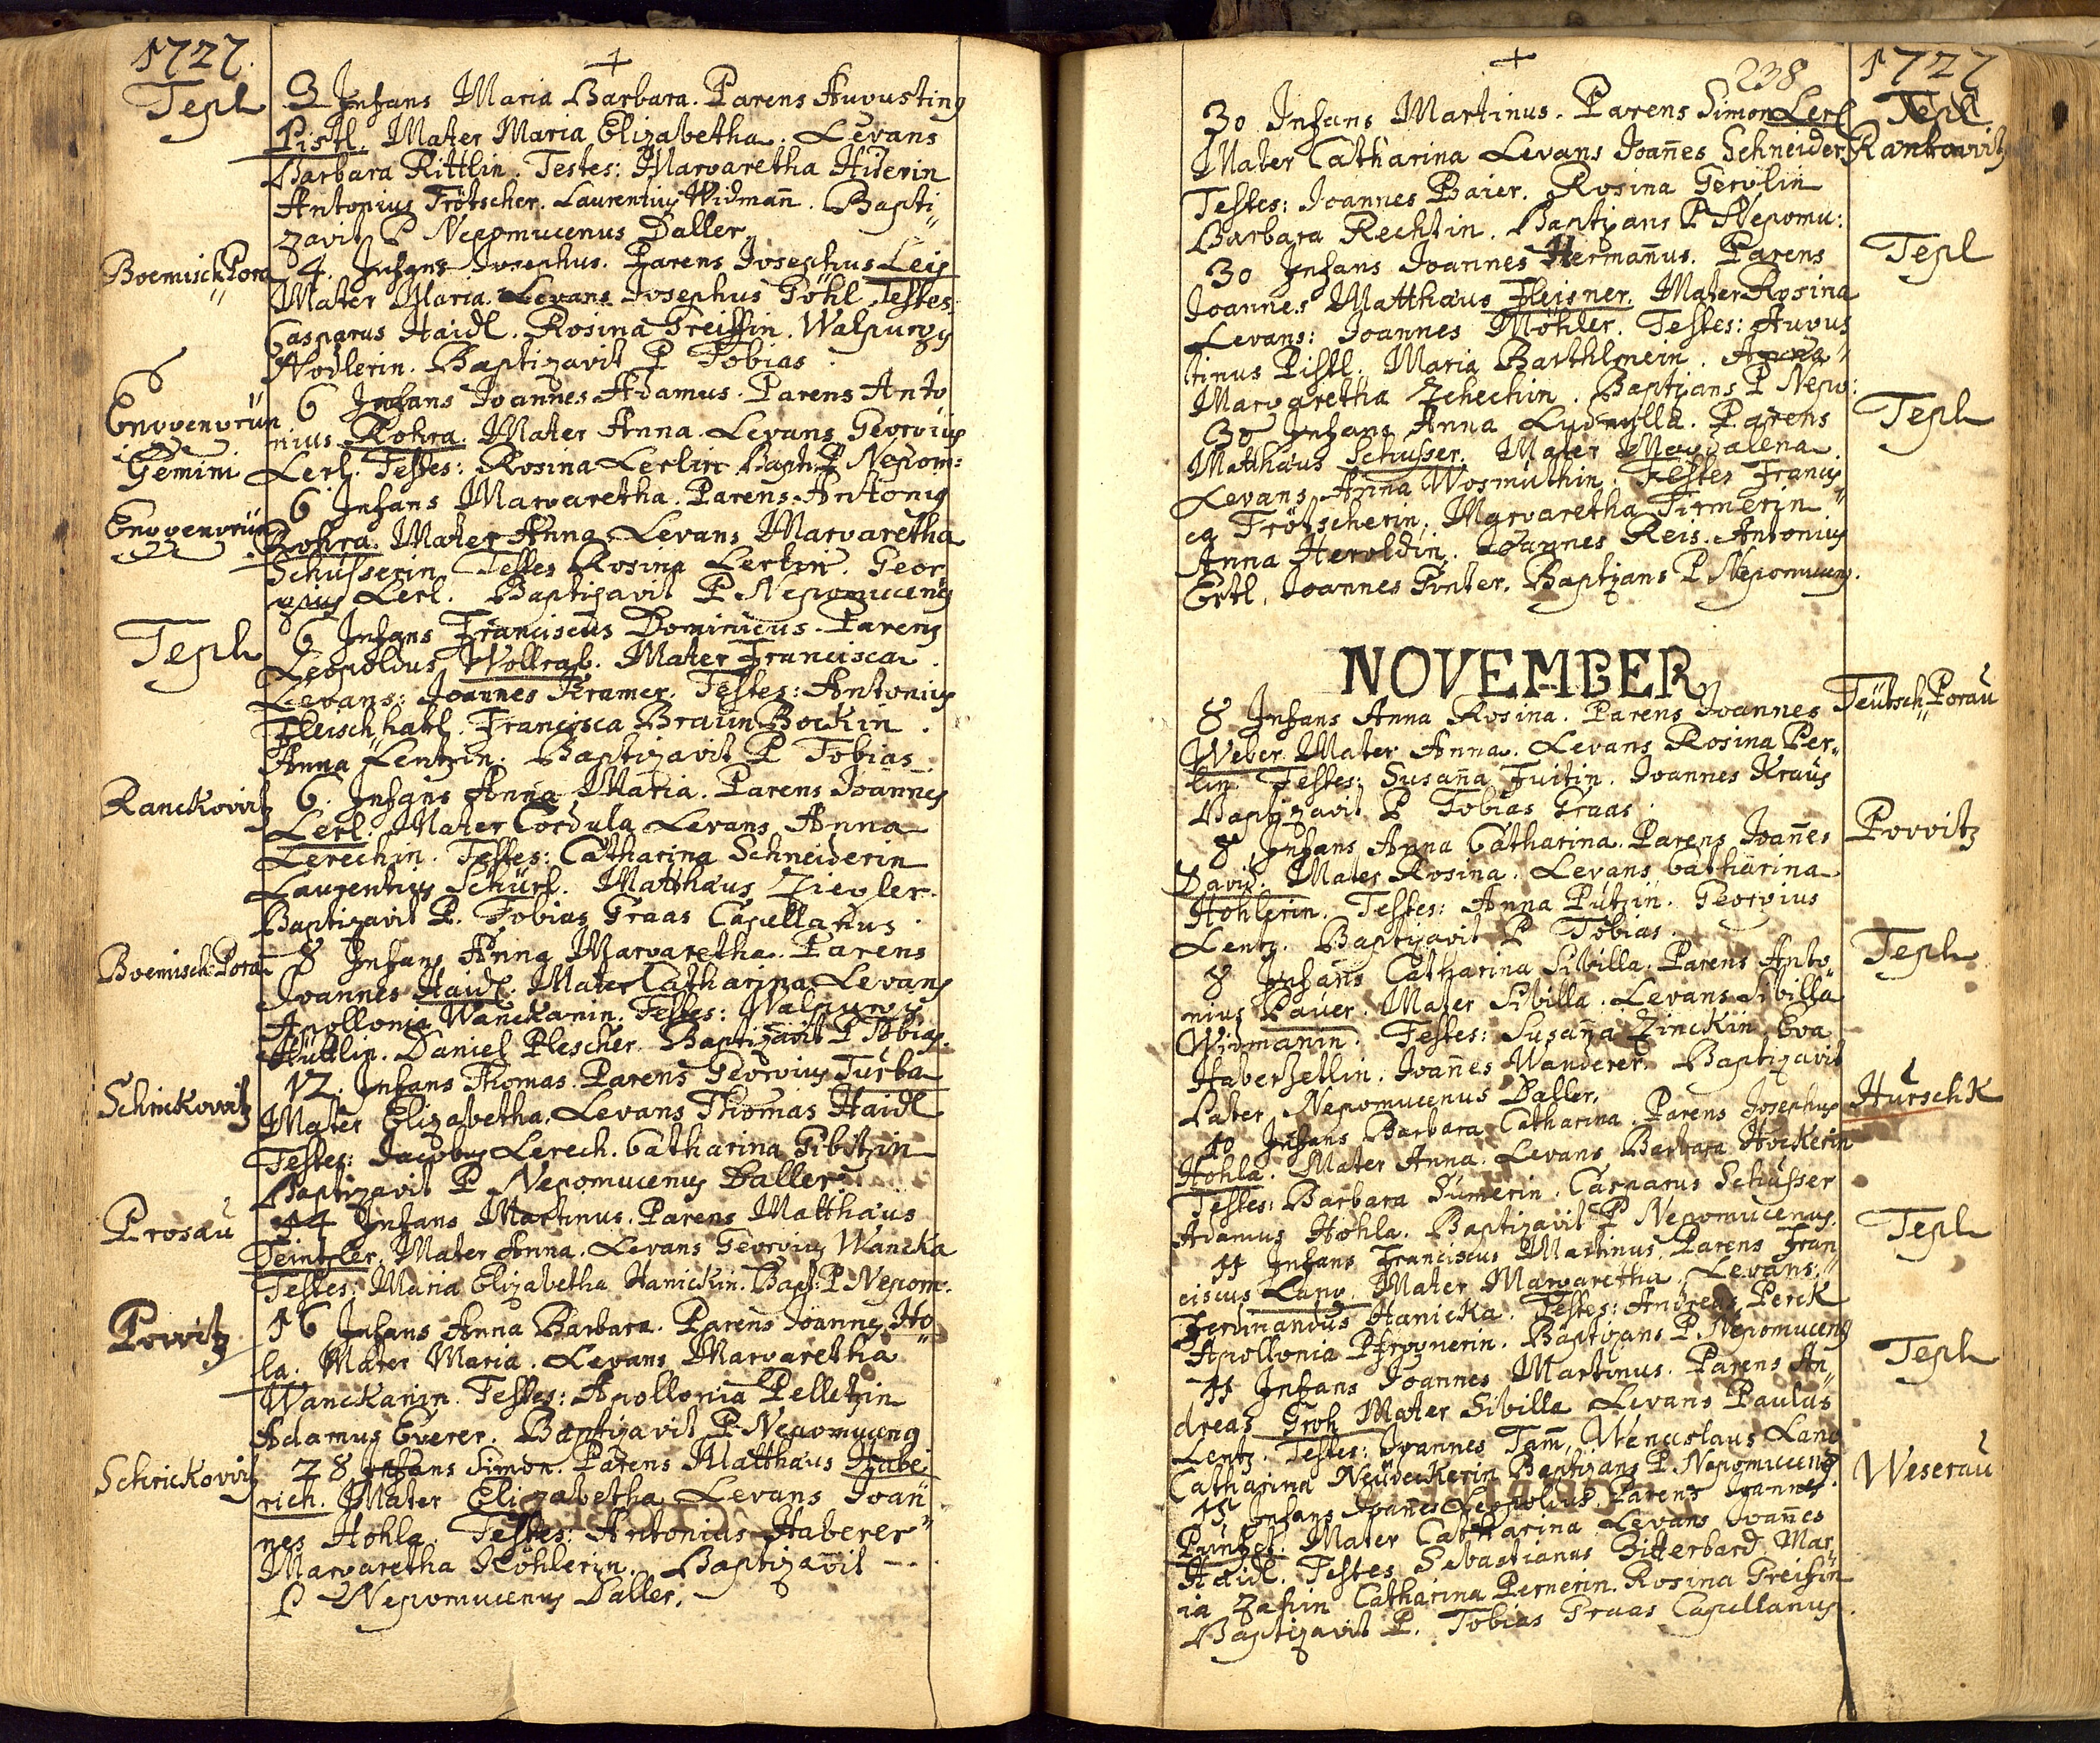 1727.
Tepl
3 Infans Maria Barbara. Parens Augusting
Pistl. Mater Maria Elizabetha. Levans
Barbara Rittlin. Testes: Margaretha
Antonius Frötscher. Laurentius Widman̄. Bapti„
zavit P Nepomucenus Daller
Boemisch Pora
4. Infans Josephus. Parens Josephus Leis
Mater Maria. Levans Josephus Göhl Testes
Casparus Haidl. Rosina Greissin. Walpurgs
Nodlerin. Baptizavit P Tobias
6
Enggengrün
6 Infans Joannes Adamus. Parens Anto
nius Rohra. Mater Anna. Levans Georgius
Gemini
Lerl. Testes: Rosina Lerlin Bapt: P Nepom:
6 Infans Margaretha. Parens Antonis
Enggengrün
Rohra. Mater Anna Levans Margaretha
Schusserin Testes Rosina Lerlin. Geor
gius Lerl. Baptizavit P Nepomuceng
Tepl
6 Infans Franciscus Dominicus. Parens
Leopoldus Wollrab. Mater Francisca.
Levans: Joannes Kramer. Testes: Antonius
Fleischhakl. Francisca Braun Bockin.
Anna Lentzin. Baptizavit P Tobias
Ranckovitz
6. Infans Anna Maria. Parens Joannes
Lerl. Mater Cordula Levans Anna
Lerechin. Testes: Catharina Schneiderin
Laurentius Schürl. Matthäus Ziegler.
Baptizavit P. Tobias Graas Capellanus.
Boemisch Pora
8 Infans Anna Margaretha. Parens
Joannes Haidl. Mater Catharina Levans
Apollonia Wanckanin. Testes: Walpurgs
Hüttlin. Daniel Plescher Baptizavit P Tobias.
Schrickowitz
12. Infans Thomas. Parens Georgius Turba
Mater Elizabetha. Levans Thomas Haidl
Testes: Jacobus Lerech. Catharina Gibitzin
Baptizavit P Nepomucenus Daller
Prosau
14 Infans Martinus. Parens Matthäus
Teintzler. Mater Anna. Levans Georgius Wancka
Testes: Maria Elizabetha Hanickin. Bapt: P Nepom:
Pogitz
16 Infans Anna Barbara. Parens Joannes Ho„
la. Mater Maria. Levans Margaretha
Wanckanin. Testes: Apollonia Pelletzin
Adamus Everer. Baptizavit P Nepomuceng
Schrickovitz
28 Infans Simon. Parens Matthäus Habe
rich. Mater Elizabetha Levans Joan̄
nes Hohla. Testes: Antonius Haberer
Margaretha Köhlerin. Baptizavit
P Nepomucenus Daller.
238
1727
30 Infans Martinus. Parens Simon Lerl
Tepl
Mater Catharina Levans Joan̄es Schneider
Rankowitz
Testes: Joannes Baier. Rosina Gerglin
Barbara Rechlin. Baptizans P Nepomu:
30 Infans Joannes Herman̄us. Parens
Tepl
Joannes Matthäus Fleisner. Mater Rosina
Levans: Joannes Möhler. Testes: Augus
tinus Pistl. Maria Barthlmein.
Margaretha Zchechin. Baptizans P Nepo:
30 Infans Anna Ludmylla. Parens
Tepl
Matthäus Schusser. Mater Magdalena.
Levans Anna Wosmuthin. Testes Francis
ca Frötscherin. Margaretha Firmerin
Anna Heroldin. Joannes Reis. Antonius
Ertl. Joannes Ginter. Baptizans P Nepomuceng.
NOVEMBER
8 Infans Anna Rosina. Parens Joannes
Teutsch Porau
Weber Mater Anna. Levans Rosina Per„
lin Testes: Susan̄a Fuitin. Joannes Kraus
Baptizavit P Tobias Graas.
8 Infans Anna Catharina. Parens Joan̄es
Pogitz
David. Mater Rosina. Levans Catharina
Hohlerin. Testes: Anna Putzin. Georgius
Lentz. Baptizavit P Tobias.
8 Infans Catharina Sibilla. Parens Anto
Tepl
nius Pauer. Mater Sibilla. Levans Sibilla
Widmanin. Testes: Susan̄a Zinckin Eva
Haberzetlin. Joan̄es Wanderer. Baptizavit
Pater Nepomucenus Daller.
Hurschk
10 Infans Barbara Catharina. Parens Josephus
Hohla. Mater Anna. Levans Barbara Hockerin
Testes: Barbara Sumerin. Casparus Schusser
Adamus Hohla. Baptizavit P Nepomucenus.
11 Infans Franciscus Martinus. Parens Fran
Tepl
ciscus Lang. Mater Margaretha. Levans:
Ferdinandus Hanicka. Testes: Andreas Perck
Apollonia Pfrognerin. Baptizans P. Nepomuceng
11 Infans Joannes Martinus. Parens An„
Tepl
dreas Groh Mater Sibilla Levans Paulus
Lentz. Testes: Joannes Tam̄, Wenceslaus Lang
Catharina Neudeckerin Baptizans P. Nepomuceng
15 Infans Joan̄es Leopoldus. Parens Joannes
Weserau
Puntzt. Mater Catharina Levans Joan̄es
Haidl. Testes Sebastianus Bitterbard Mar
ia Catharina Pernerin. Rosina Greisin
Baptizavit P. Tobias Graas Capellanus.